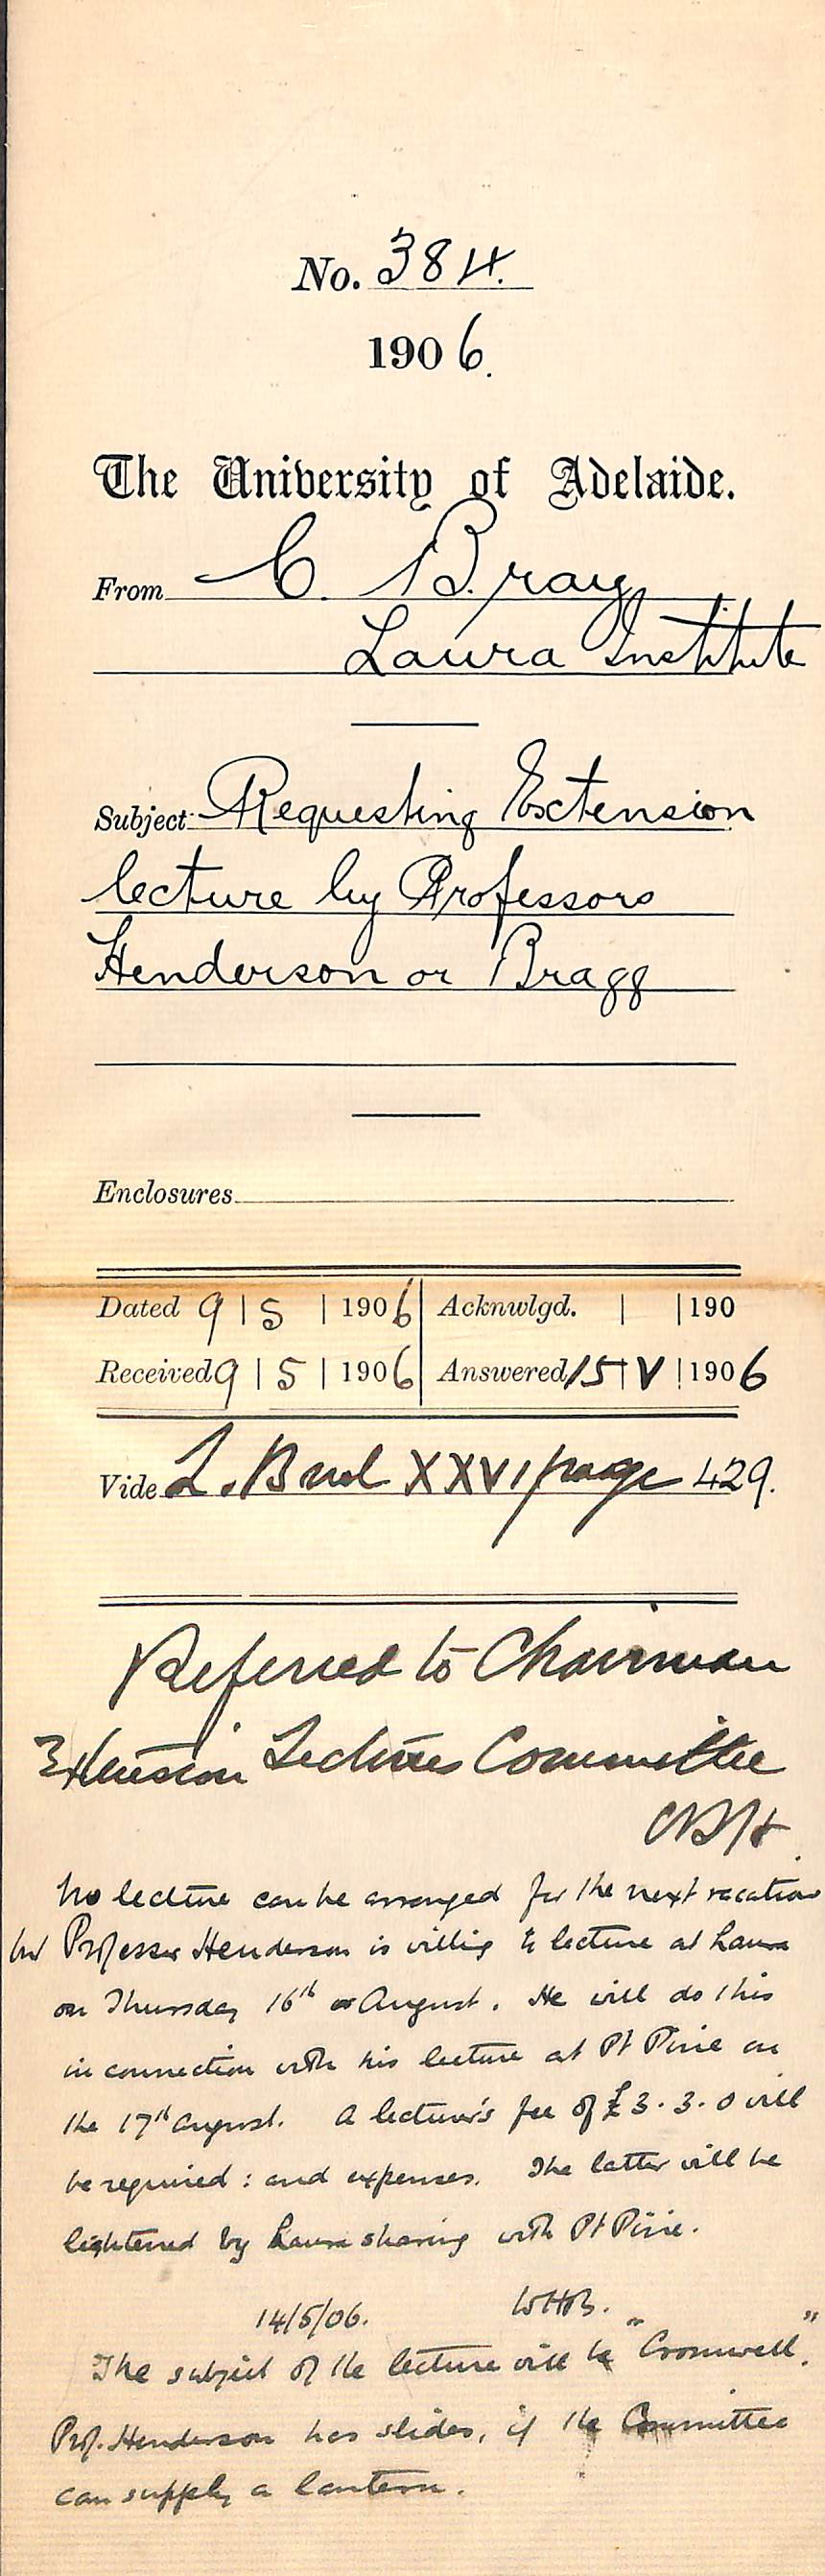 No. 384.
1906.
The University of Adelaide.
From C. Bray
Laura Institute
Subject Requesting Extension
lecture by Professors
Henderson or Bragg
Enclosures
Dated 9 | 5 | 1906 Acknwlgd. | | 190
Received 9 | 5 | 1906 Answered 15 | V | 1906
Vide L. Book XXVI page 429.
Referred to Chairman
Extension Lectures Committee
No lecture can be arranged for the next vacation
but Professor Henderson is willing to lecture at Laura
on Thursday 16th August. He will do this
in connection with his lecture at Pt Pirie on
the 17th August. A lecturer's fee of £3.3.0 will
be required: and expenses. The latter will be
lightened by Laura sharing with Pt Pirie.
14/5/06. WHB.
The subject of the lecture will be "Cromwell".
Prof. Henderson has slides, if the Committee
can supply a lantern.